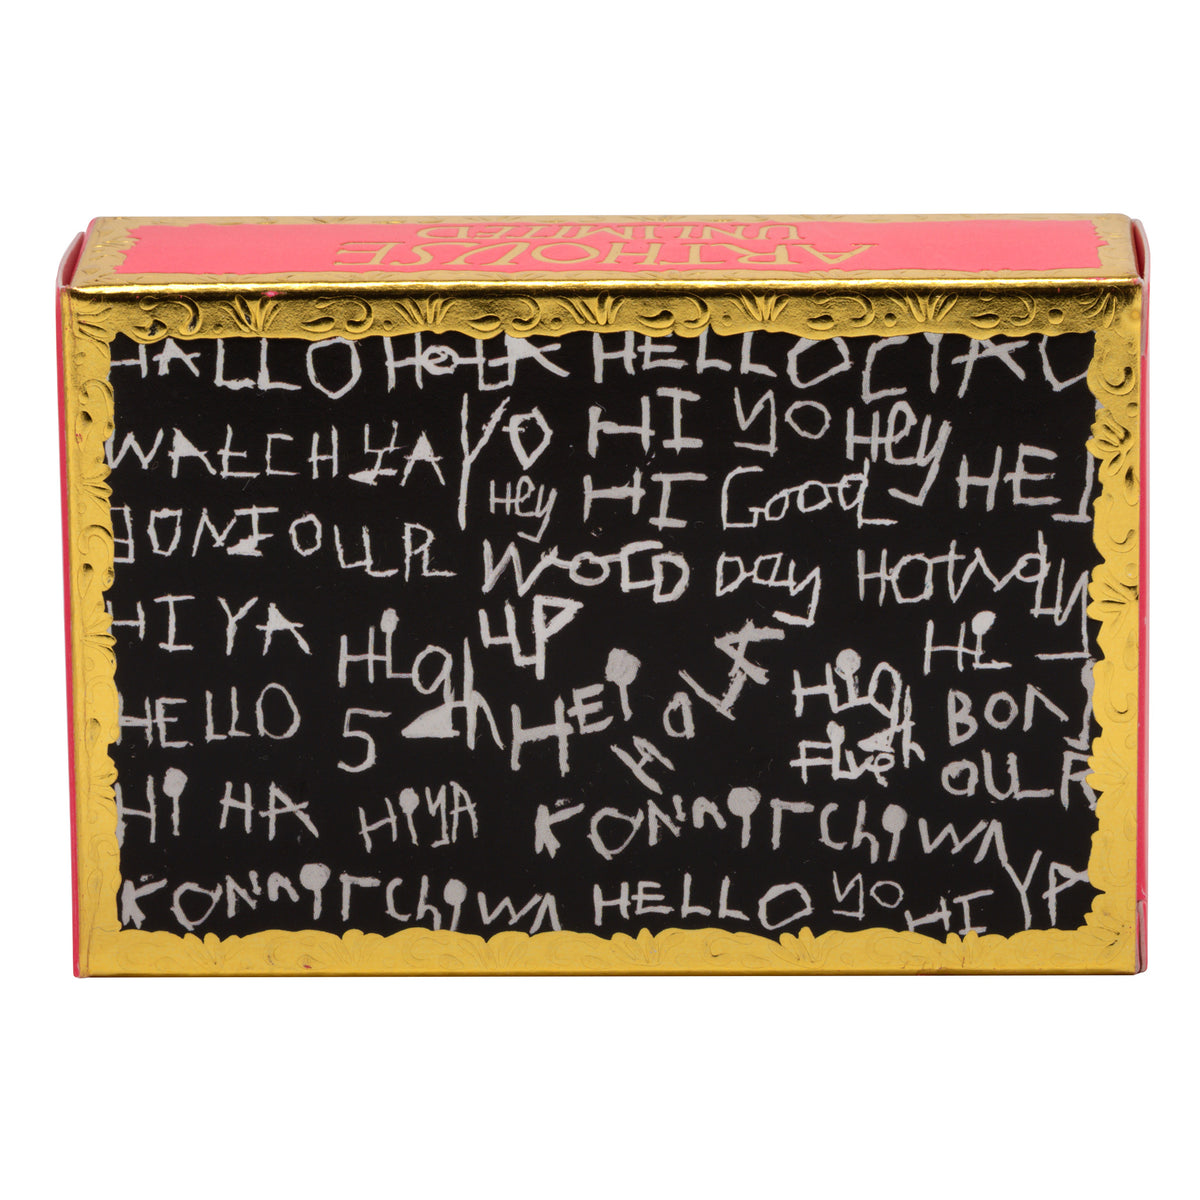 ARTHOUSE
UNLIMITED
HALLO HOLA HELLO CIAO
WATCHYA YO HI YO Hey
Hey HI Good HEI
BONJOUR WORD Day HOWDY
UP
HI YA High HeI HOLA High HI
HELLO 5 Five BONJ
OUR
Hi HA HiYA KONNiTChiWA
KONNiTChiWA HELLO YO HI YA